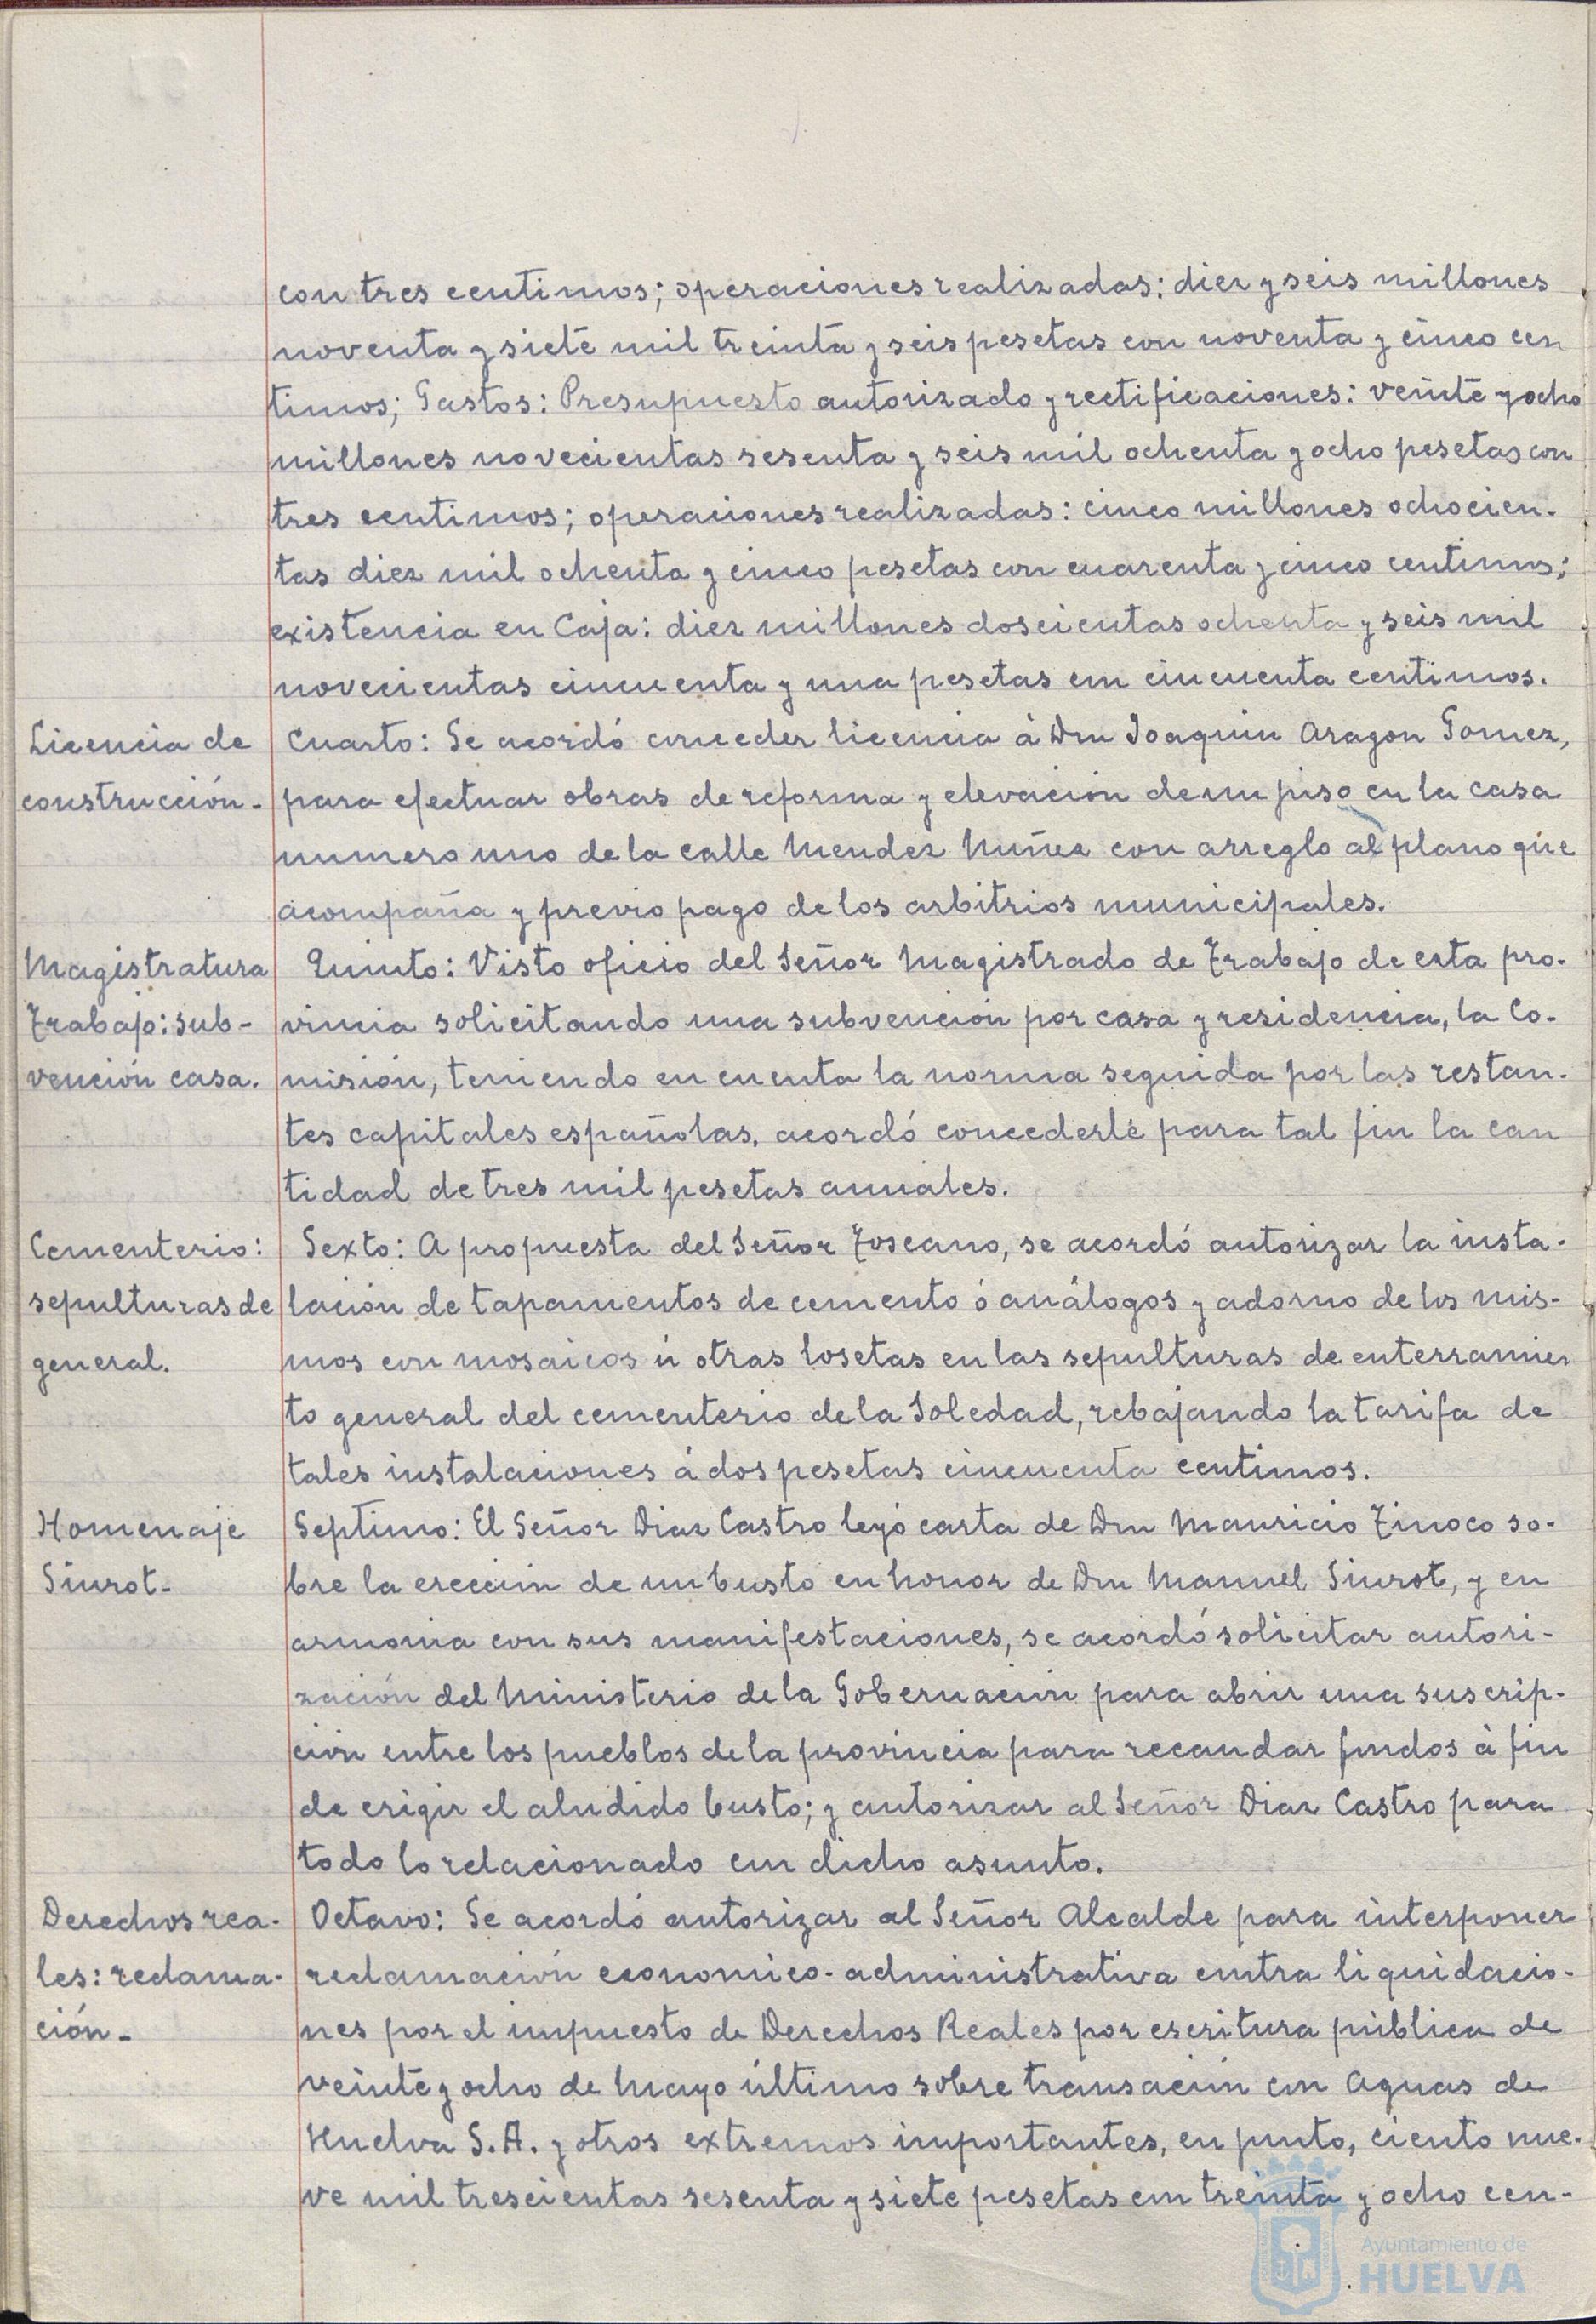 con tres centimos; operaciones realizadas: diez y seis millones
noventa y siete mil treinta y seis pesetas con noventa y cinco cen
timos; Gastos: Presupuesto autorizado y rectificaciones: veinte y ocho
millones novecientas sesenta y seis mil ochenta y ocho pesetas con
tres centimos; operaciones realizadas: cinco millones ochocien-
tas diez mil ochenta y cinco pesetas con cuarenta y cinco centimos;
existencia en Caja: diez millones doscientas ochenta y seis mil
novecientas cincuenta y una pesetas con cincuenta centimos.
Licencia de
construcción-
Cuarto: Se acordó conceder licencia á Don Joaquin Aragon Gomez,
para efectuar obras de reforma y elevación de un piso en la casa
numero uno de la calle Mendez Nuñez con arreglo al plano que
acompaña y previo pago de los arbitrios municipales.
Magistratura
Trabajo: sub-
vención casa.
Quinto: Visto oficio del Señor Magistrado de Trabajo de esta pro-
vincia solicitando una subvención por casa y residencia, la Co-
misión, teniendo en cuenta la norma seguida por las restan-
tes capitales españolas, acordó concederle para tal fin la can
tidad de tres mil pesetas anuales.
Cementerio:
sepulturas de
general.
Sexto: A propuesta del Señor Toscano, se acordó autorizar la insta-
lación de tapamentos de cemento ó análogos y adorno de los mis-
mos con mosaicos ú otras losetas en las sepulturas de enterramien
to general del cementerio de la Soledad, rebajando la tarifa de
tales instalaciones á dos pesetas cincuenta centimos.
Homenaje
Siurot-
Septimo: El Señor Diaz Castro leyó carta de Don Mauricio Tinoco so-
bre la erección de un busto en honor de Don Manuel Siurot, y en
armonia con sus manifestaciones, se acordó solicitar autori-
zación del Ministerio de la Gobernación para abrir una suscrip-
ción entre los pueblos de la provincia para recaudar fondos á fin
de erigir el aludido busto; y autorizar al Señor Diaz Castro para
todo lo relacionado con dicho asunto.
Derechos rea-
les: reclama-
ción-
Octavo: Se acordó autorizar al Señor Alcalde para interponer
reclamación economico-administrativa contra liquidacio-
nes por el impuesto de Derechos Reales por escritura pública de
veinte y ocho de Mayo último sobre transación con Aguas de
Huelva S.A. y otros extremos importantes, en junto, ciento nue-
ve mil trescientas sesenta y siete pesetas con treinta y ocho cen-
Ayuntamiento de
HUELVA